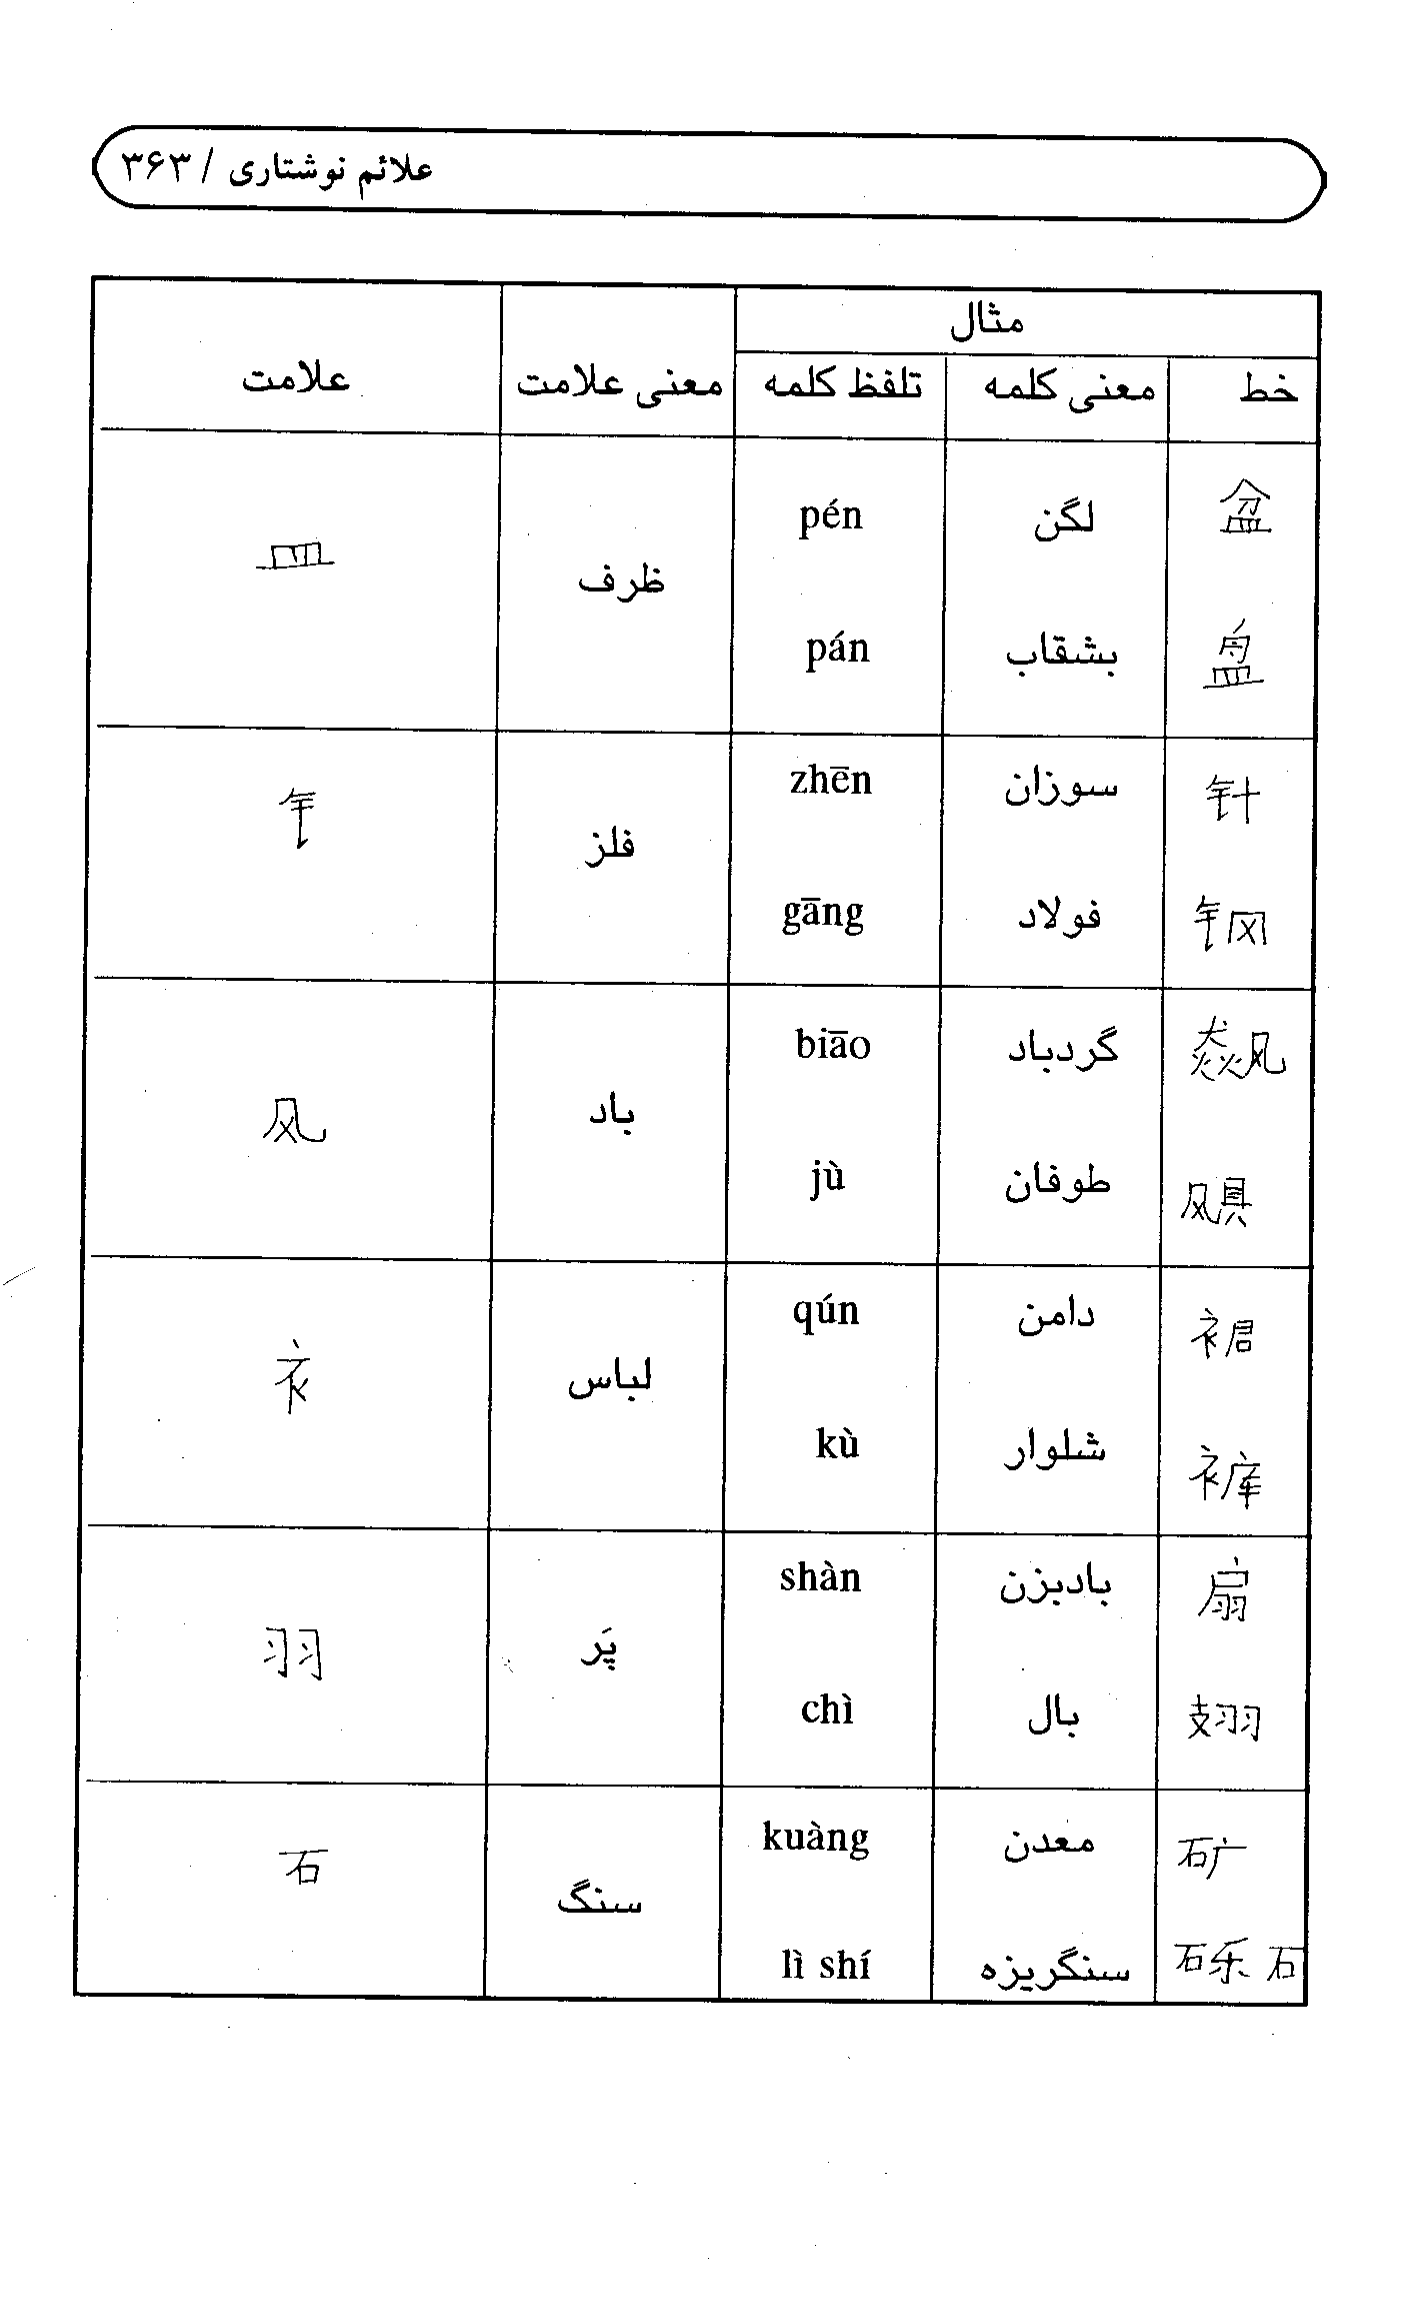 علائم نوشتاری / ۳۶۳
مثال
خط معنی کلمه تلفظ کلمه معنی علامت علامت
盆 لگن pén ظرف 皿
盘 بشقاب pán
针 سوزان zhēn فلز 钅
钢 فولاد gāng
飙 گردباد biāo باد 风
飓 طوفان jù
裙 دامن qún لباس 衤
裤 شلوار kù
扇 بادبزن shàn پَر 羽
翅 بال chì
矿 معدن kuàng سنگ 石
砾石 سنگریزه lì shí